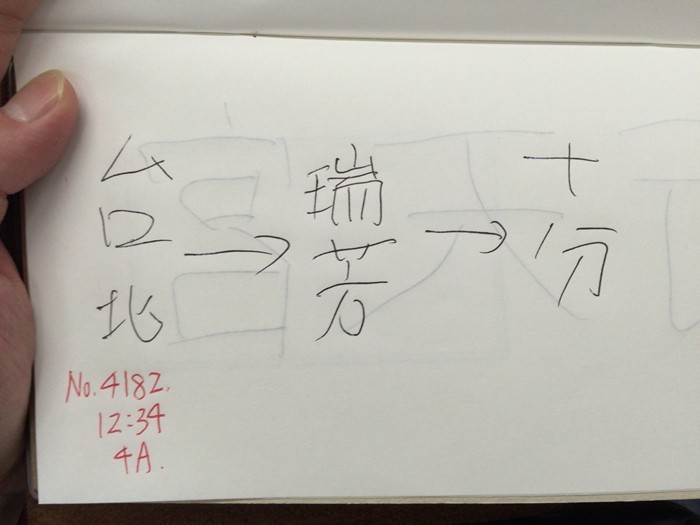 台北 → 瑞芳 → 十分
No.4182.
12:34
4A.